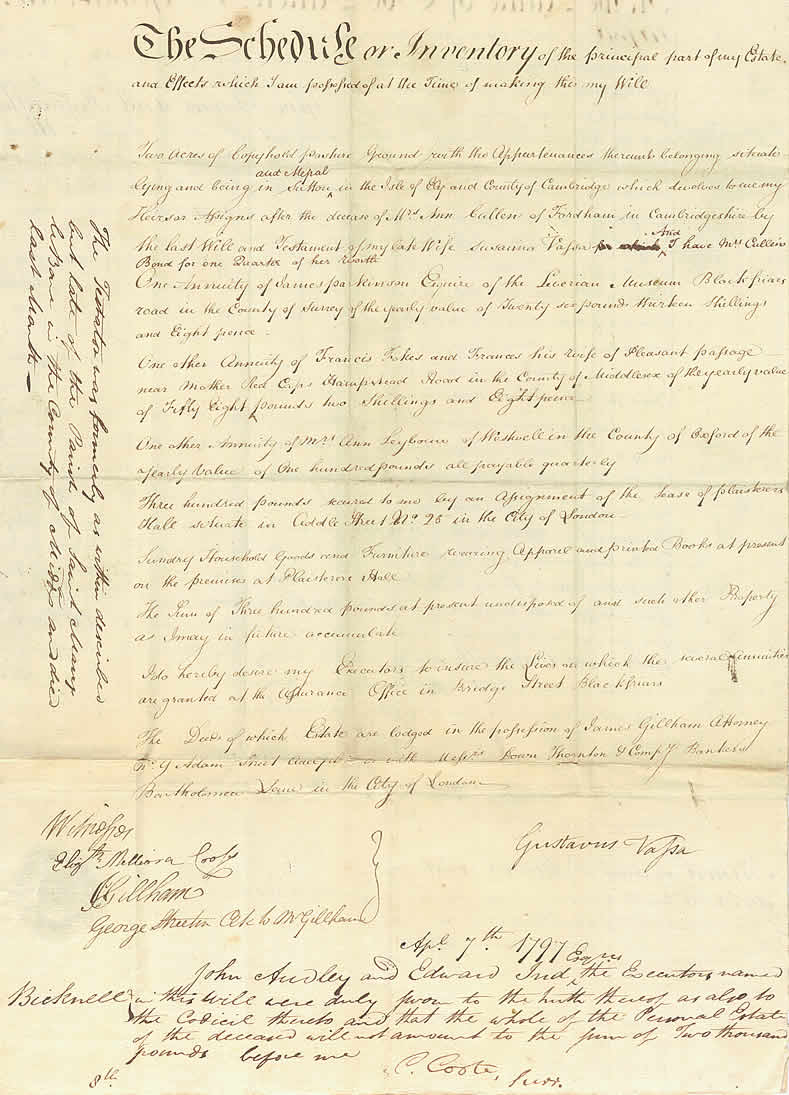 The Schedule or Inventory of the principal part of my Estate
and Effects which I am possessed of at the Time of making this my Will
Two Acres of Copyhold pasture Ground with the Appurtenances thereunto belonging situate
and Mepal
lying and being in Sutton in the Isle of Ely and County of Cambridge which devolves to me my
Heirs or Assigns after the decease of Mrs. Ann Cullen of Fordham in Cambridgeshire by
the last Will and Testament of my late Wife Susanna Vassa for which And I have Mrs Cullens
Bond for one Quarter of her
One Annuity of James parkinson Esquire of the Liverian Museum Blackfriars
road in the County of Surrey of the yearly value of Twenty six pounds thirteen Shillings
and Eight pence
One other Annuity of Francis Fokes and Frances his Wife of Pleasant passage
near Mother Red Caps Hampstead Road in the County of Middlesex of the yearly value
of Fifty Eight pounds two Shillings and Eight pence
One other Annuity of Mrs. Ann Leybourn of Westwell in the County of Oxford of the
Yearly Value of One hundred pounds all payable quarterly
Three hundred pounds secured to me by an Assignment of the Lease of plaisterers
Hall situate in Addle Street No. 25 in the City of London
Sundry Household Goods and Furniture wearing Apparel and printed Books at present
on the premises at Plaisterers Hall
The Sum of Three hundred pounds at present undisposed of and such other Property
as I may in future accumulate
I do hereby desire my Executors to insure the Lives on which the several Annuities
are granted at the Assurance Office in Bridge Street Blackfriars
The Deeds of which Estate are lodged in the possession of James Gillham Attorney
No. 9 Adam Street Adelphi or with Messrs Down Thornton & Compy. Bankers
Bartholomew Lane in the City of London
The Testator was formerly as within described
but late of the Parish of Saint Mary
le Bone in the County of Middx and died
last Month
Gustavus Vassa
Witnesses
Elizth. Melliora Cooss
J Gillham
George Streetin Clk to Mr Gillham
Apl. 7th 1797
Esqres
John Audley and Edward Ind the Executors named
Bicknell in this Will were duly sworn to the truth thereof as also to
the Codicil thereto and that the whole of the Personal Estate
of the deceased will not amount to the sum of Two thousand
pounds before me
C. Coote,
Surr.
8th